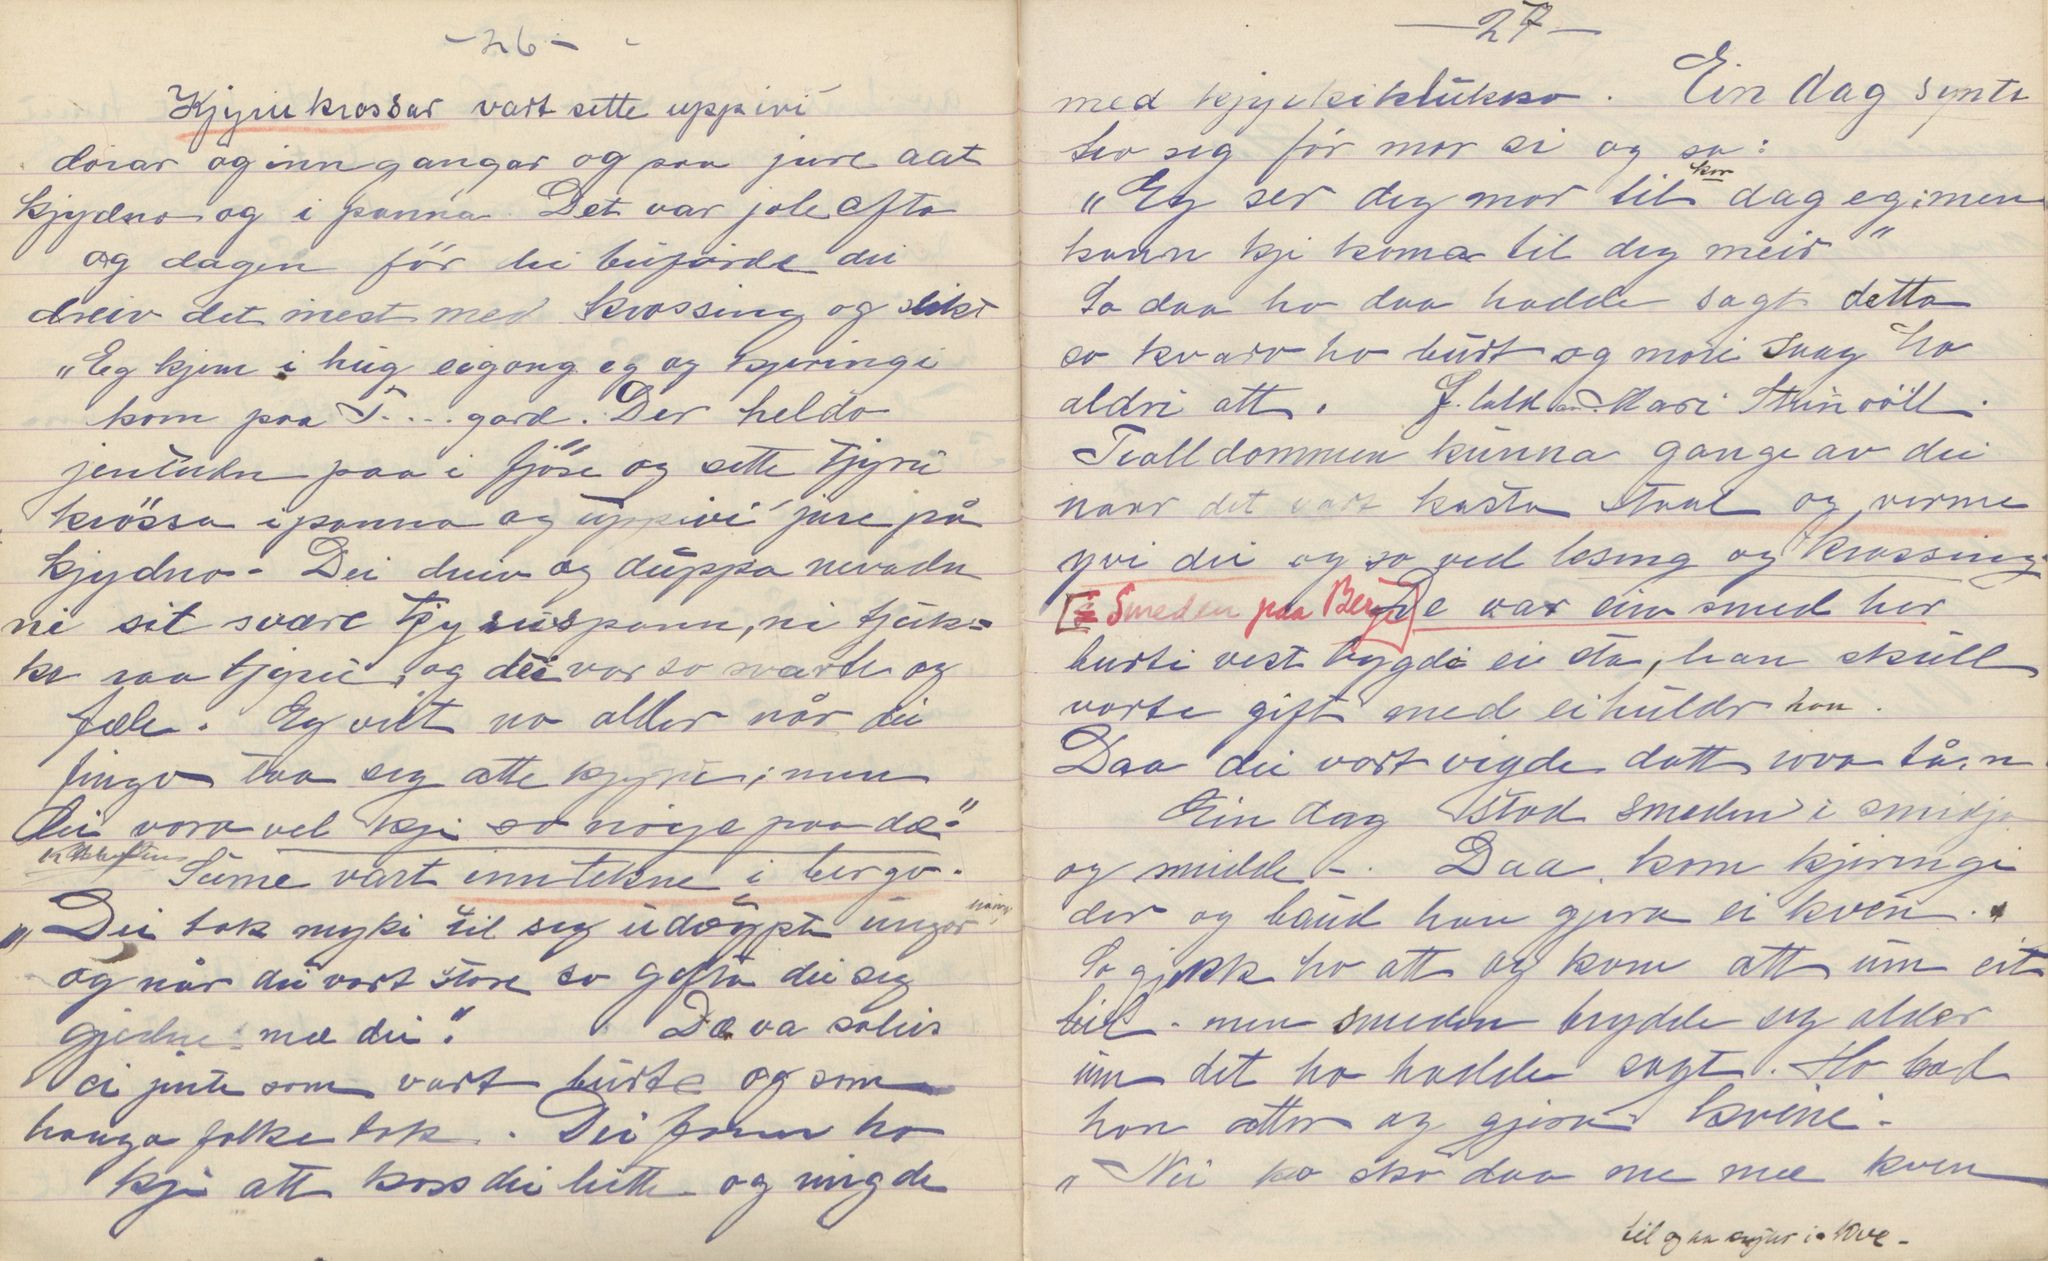 - 26 -
Kjyrukrossar vart sette uppivi
dörar og inngangar og paa jure aat
kjydno og i panna. Det var joleafta
og dagen för dei buförde dei
dreiv det mest med krossing og slikt
"Eg kjem i hug eigong eg og kjeringi
kom paa T....gard. Der heldo
jentudn paa i fjöse og sette tjyru
krossa i panna og uppivi jure på
kjydno - Dei dreiv og duppa nevadn
ni sit svære tjyruspann, ni tjuk-
ke raa tjyru, og dei var so svarte og
fæle. Eg veit no alder når dei
fingo taa seg atte kjyru; men
dei vora vel kji so nöye paa dæ."
Sume vart inntekne i bergo.
"Dei tok myki til seg udöypte ungar
og når dei vart store so gifta dei seg
gjedne mæ dei." Dæ va soleis
ei jente som vart burte og som
hauga folke tok. Dei fann ho
kji att koss dei leitte og ringde
- 27 -
med kjyrkjeklukko. Ein dag synte
ho seg för mor si og sa:
"Eg ser deg mor til kor dag eg; men
kann kji koma til deg meir"
So daa ho daa hadde sagt detta
so kvarv ho burt og mori saag ho
aldri att. F. Mari Stuvröll.
Trolldommen kunna gange av dei
naar det vart kasta staal og verme
yvi dei og so ved lesing og krossing.
[Smeden paa Berge] De var ein smed her
burti vest bygdi ei sta, han skull
varte gift med ei huldr han.
Daa dei vart vigde datt rova tå'n
Ein dag stod smeden i smidja
og smidde -. Daa kom kjeringi
der og baud han gjera ei kven.
So gjekk ho att og kom att um eit
bil - men smeden brydde seg alder
um det ho hadde sagt. Ho bad
han atter og gjera kveni.
"Nei ko sko daa me mæ kven
til